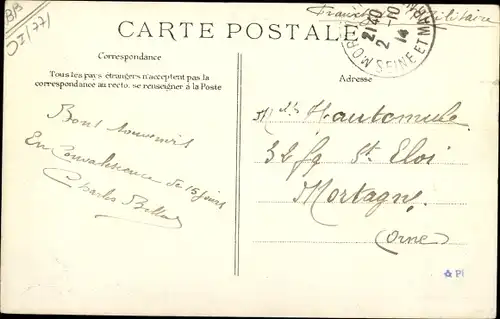 BB
OI/77/
CARTE POSTALE
Franchise Militaire
MOR
21 40
2 -10
14
SEINE ET MARNE
Correspondance
Tous les pays étrangers n'acceptent pas la
correspondance au recto. se renseigner à la Poste
Adresse
Bons Souvenirs
En Convalescence de 15 jours
Charles
Hautemule
32 fg St Eloi
Mortagne
(Orne)